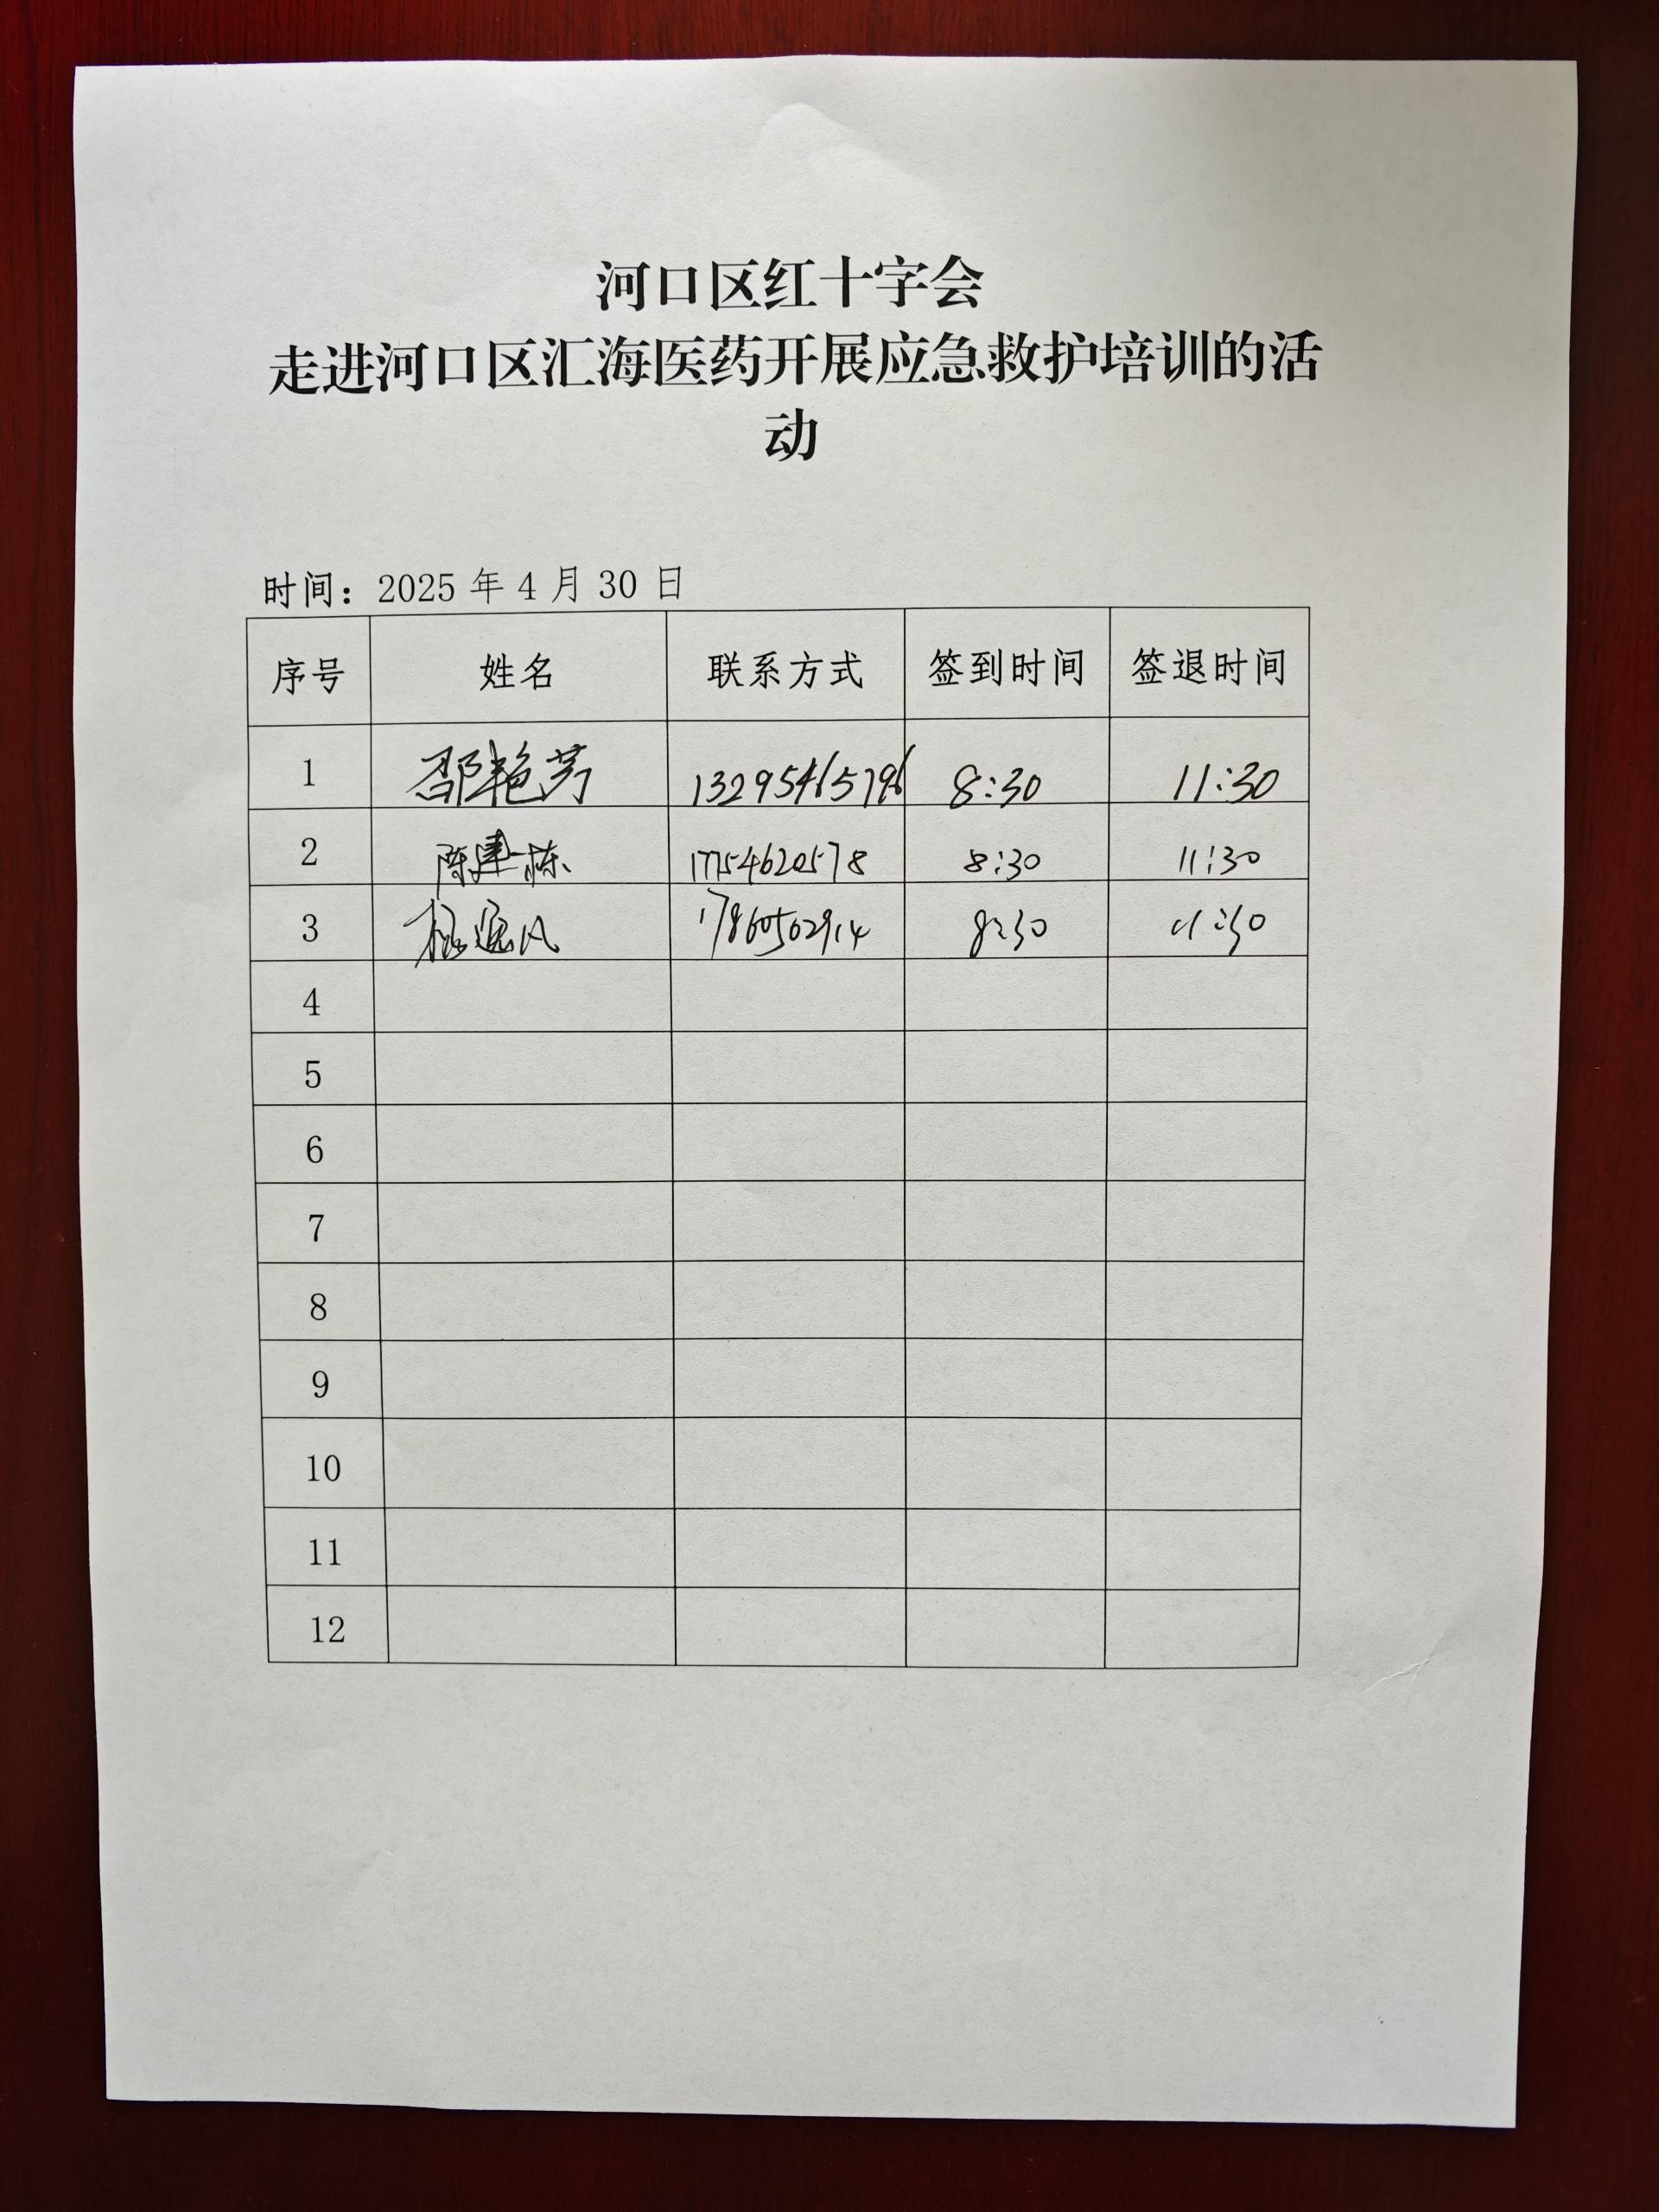 河口区红十字会
走进河口区汇海医药开展应急救护培训的活
动
时间：2025 年 4 月 30 日
序号 姓名 联系方式 签到时间 签退时间
1 邵艳芳 13295465796 8:30 11:30
2 陈建栋 17754620578 8:30 11:30
3 17860502914 8:30 11:30
4
5
6
7
8
9
10
11
12